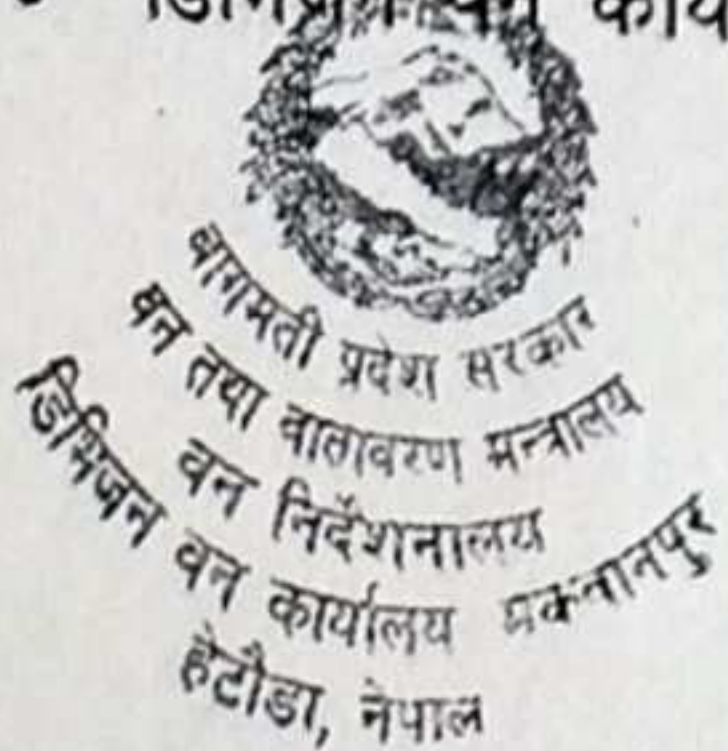 डिभिजन वन कार्य
बागमती प्रदेश सरकार
वन तथा वातावरण मन्त्रालय
वन निर्देशनालय
डिभिजन वन कार्यालय मकवानपुर
हेटौंडा, नेपाल